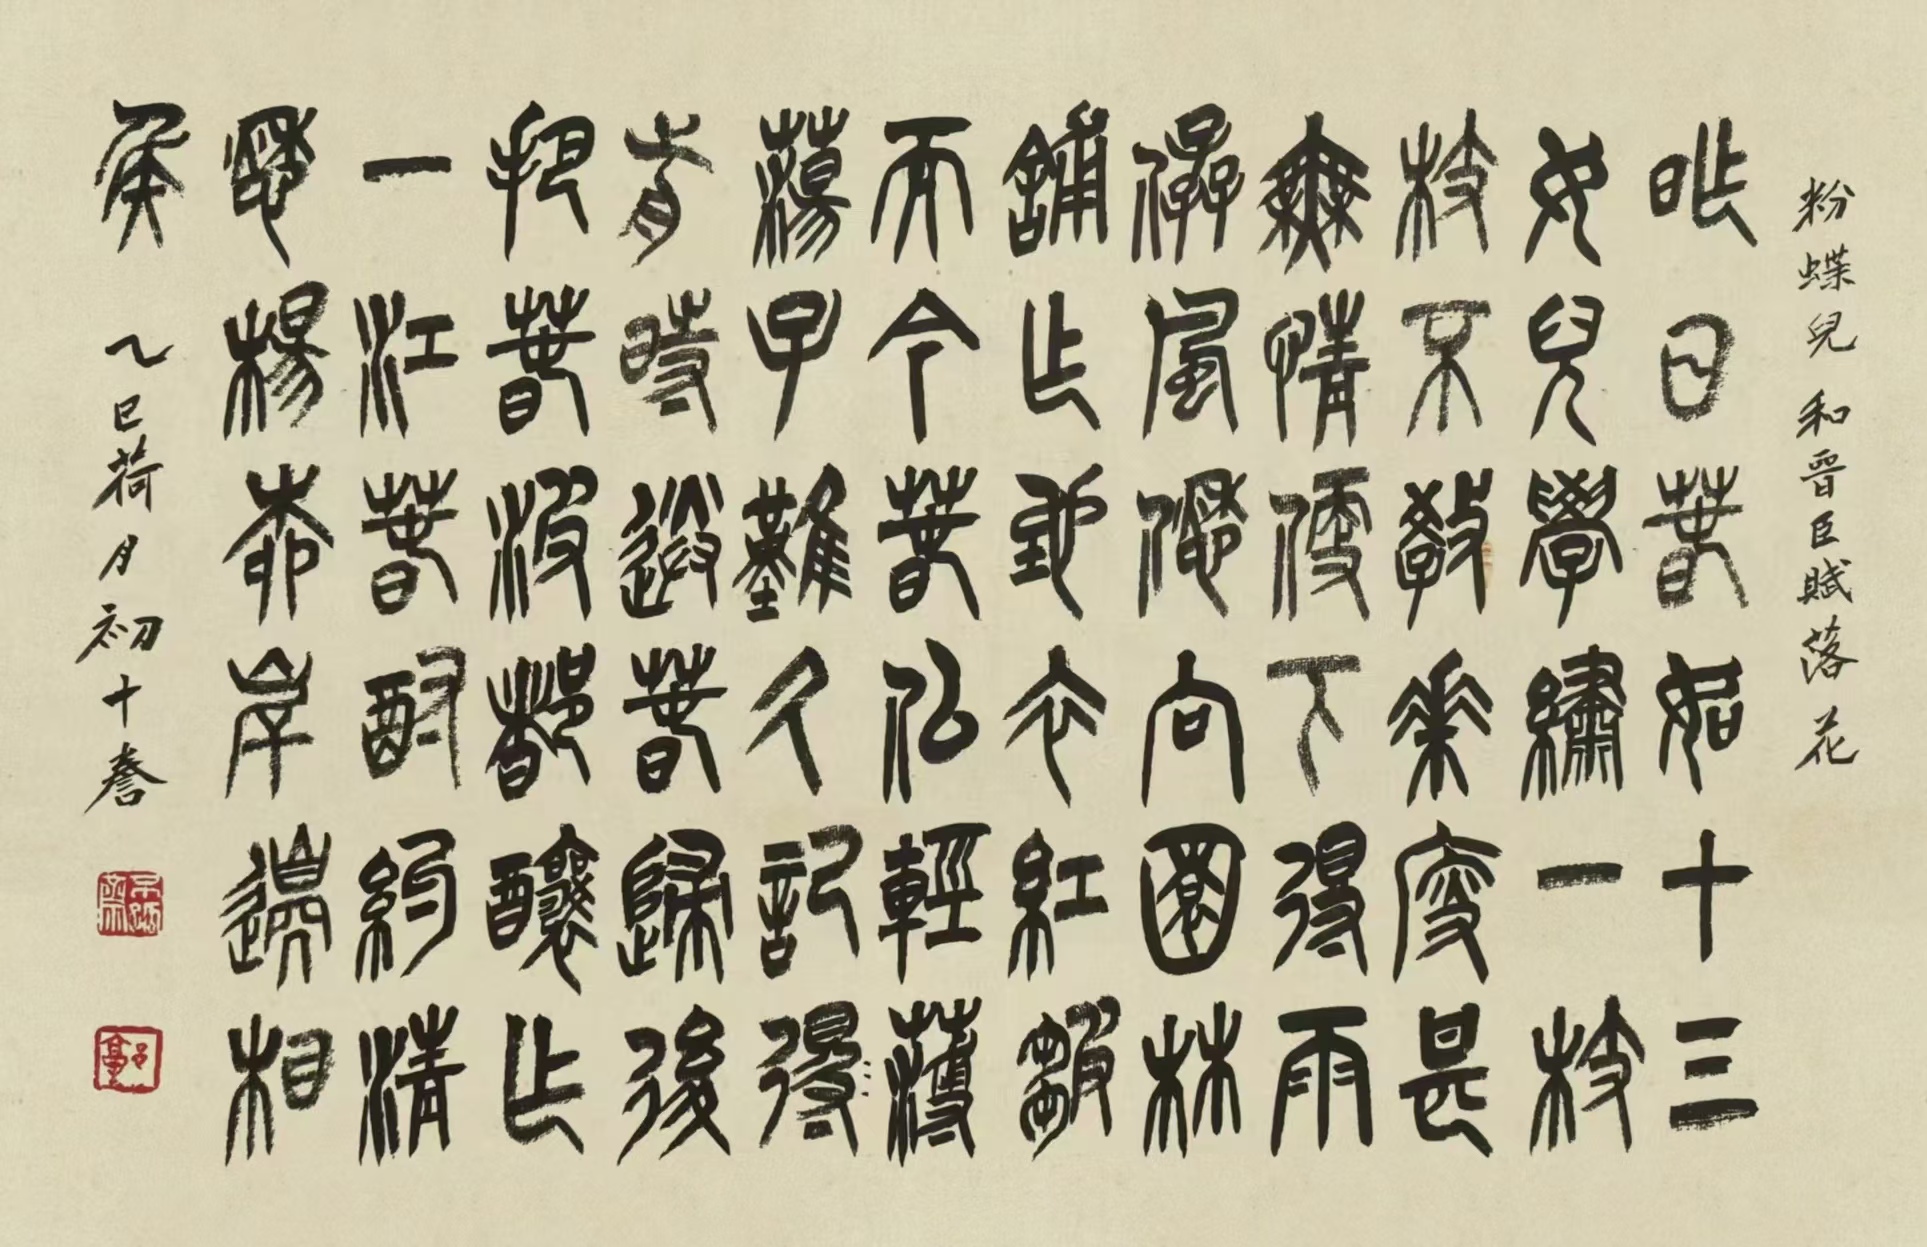 粉蝶兒 和晉臣賦落花
昨日春如十三
女兒學繡一枝
枝不教花瘦甚
無情便下得雨
僝風僽向園林
鋪作地衣紅皺
而今春似輕薄
蕩子難久記得
前時送春歸後
把春波都釀作
一江春酎約清
愁楊柳岸邊相
候
乙巳荷月初十